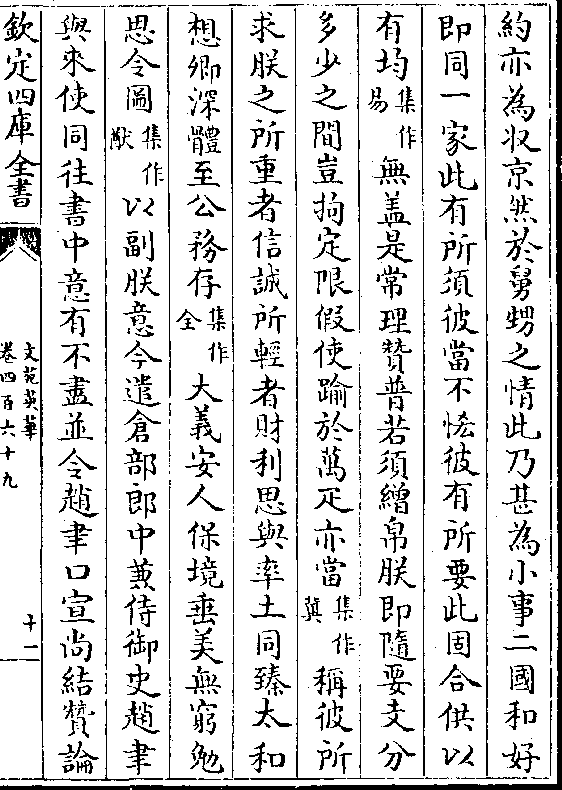 約亦為収京然於舅甥之情此乃甚為小事二國和好
即同一家此有所須彼當不恡彼有所要此固合供以
有均集作易無盖是常理贊普若須繒帛朕即隨要支分
多少之間豈拘定限假使踰於萬疋亦當集作冀稱彼所
求朕之所重者信誠所輕者財利思與率土同臻太和
想卿深體至公務存集作全大義安人保境垂美無窮勉
思令圖集作猷以副朕意今遣倉部郎中兼侍御史趙聿
與來使同往書中意有不盡並令趙聿口宣尚結贊論
欽定四庫全書
文苑英華
卷四百六十九
十一